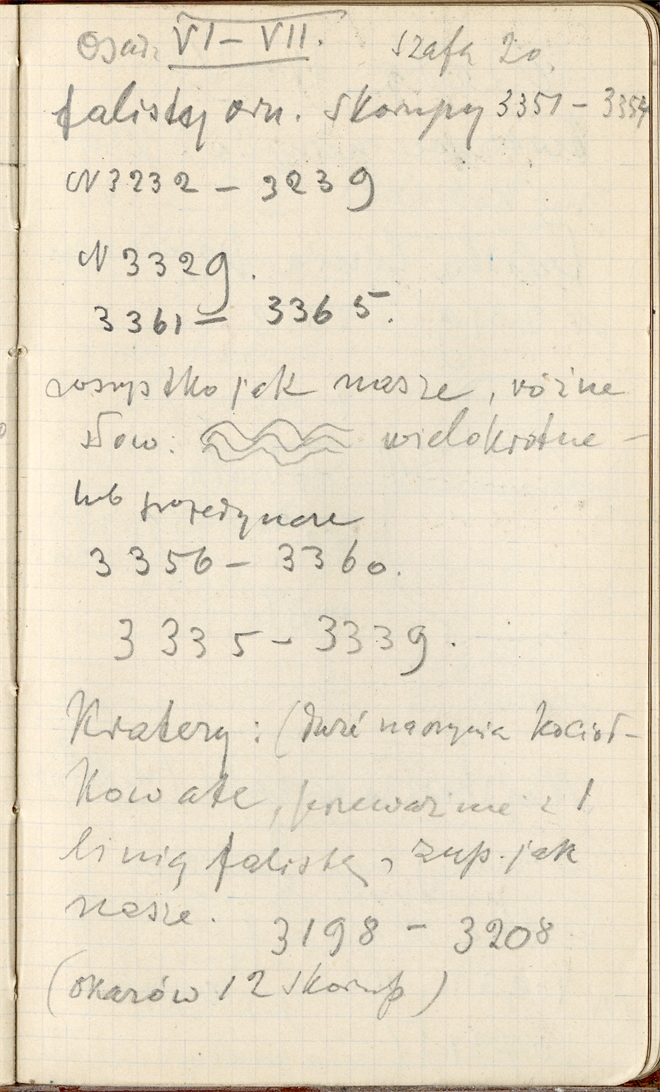 Osad. VI – VII. Szafa 20.
falistą orn. skorupy 3351 – 3354
N 3232 – 3239
N 3329.
3361 – 3365.
wszystko jak nasze, różne
słow. wielokrotne –
lub pojedyncze
3356 – 3360.
3335 – 3339.
Kratery: (duże naczynia kocioł-
kowate, przeważnie z 1
linią falistą, zup. jak
nasze. 3198 – 3208
(okazów 12 skorup)